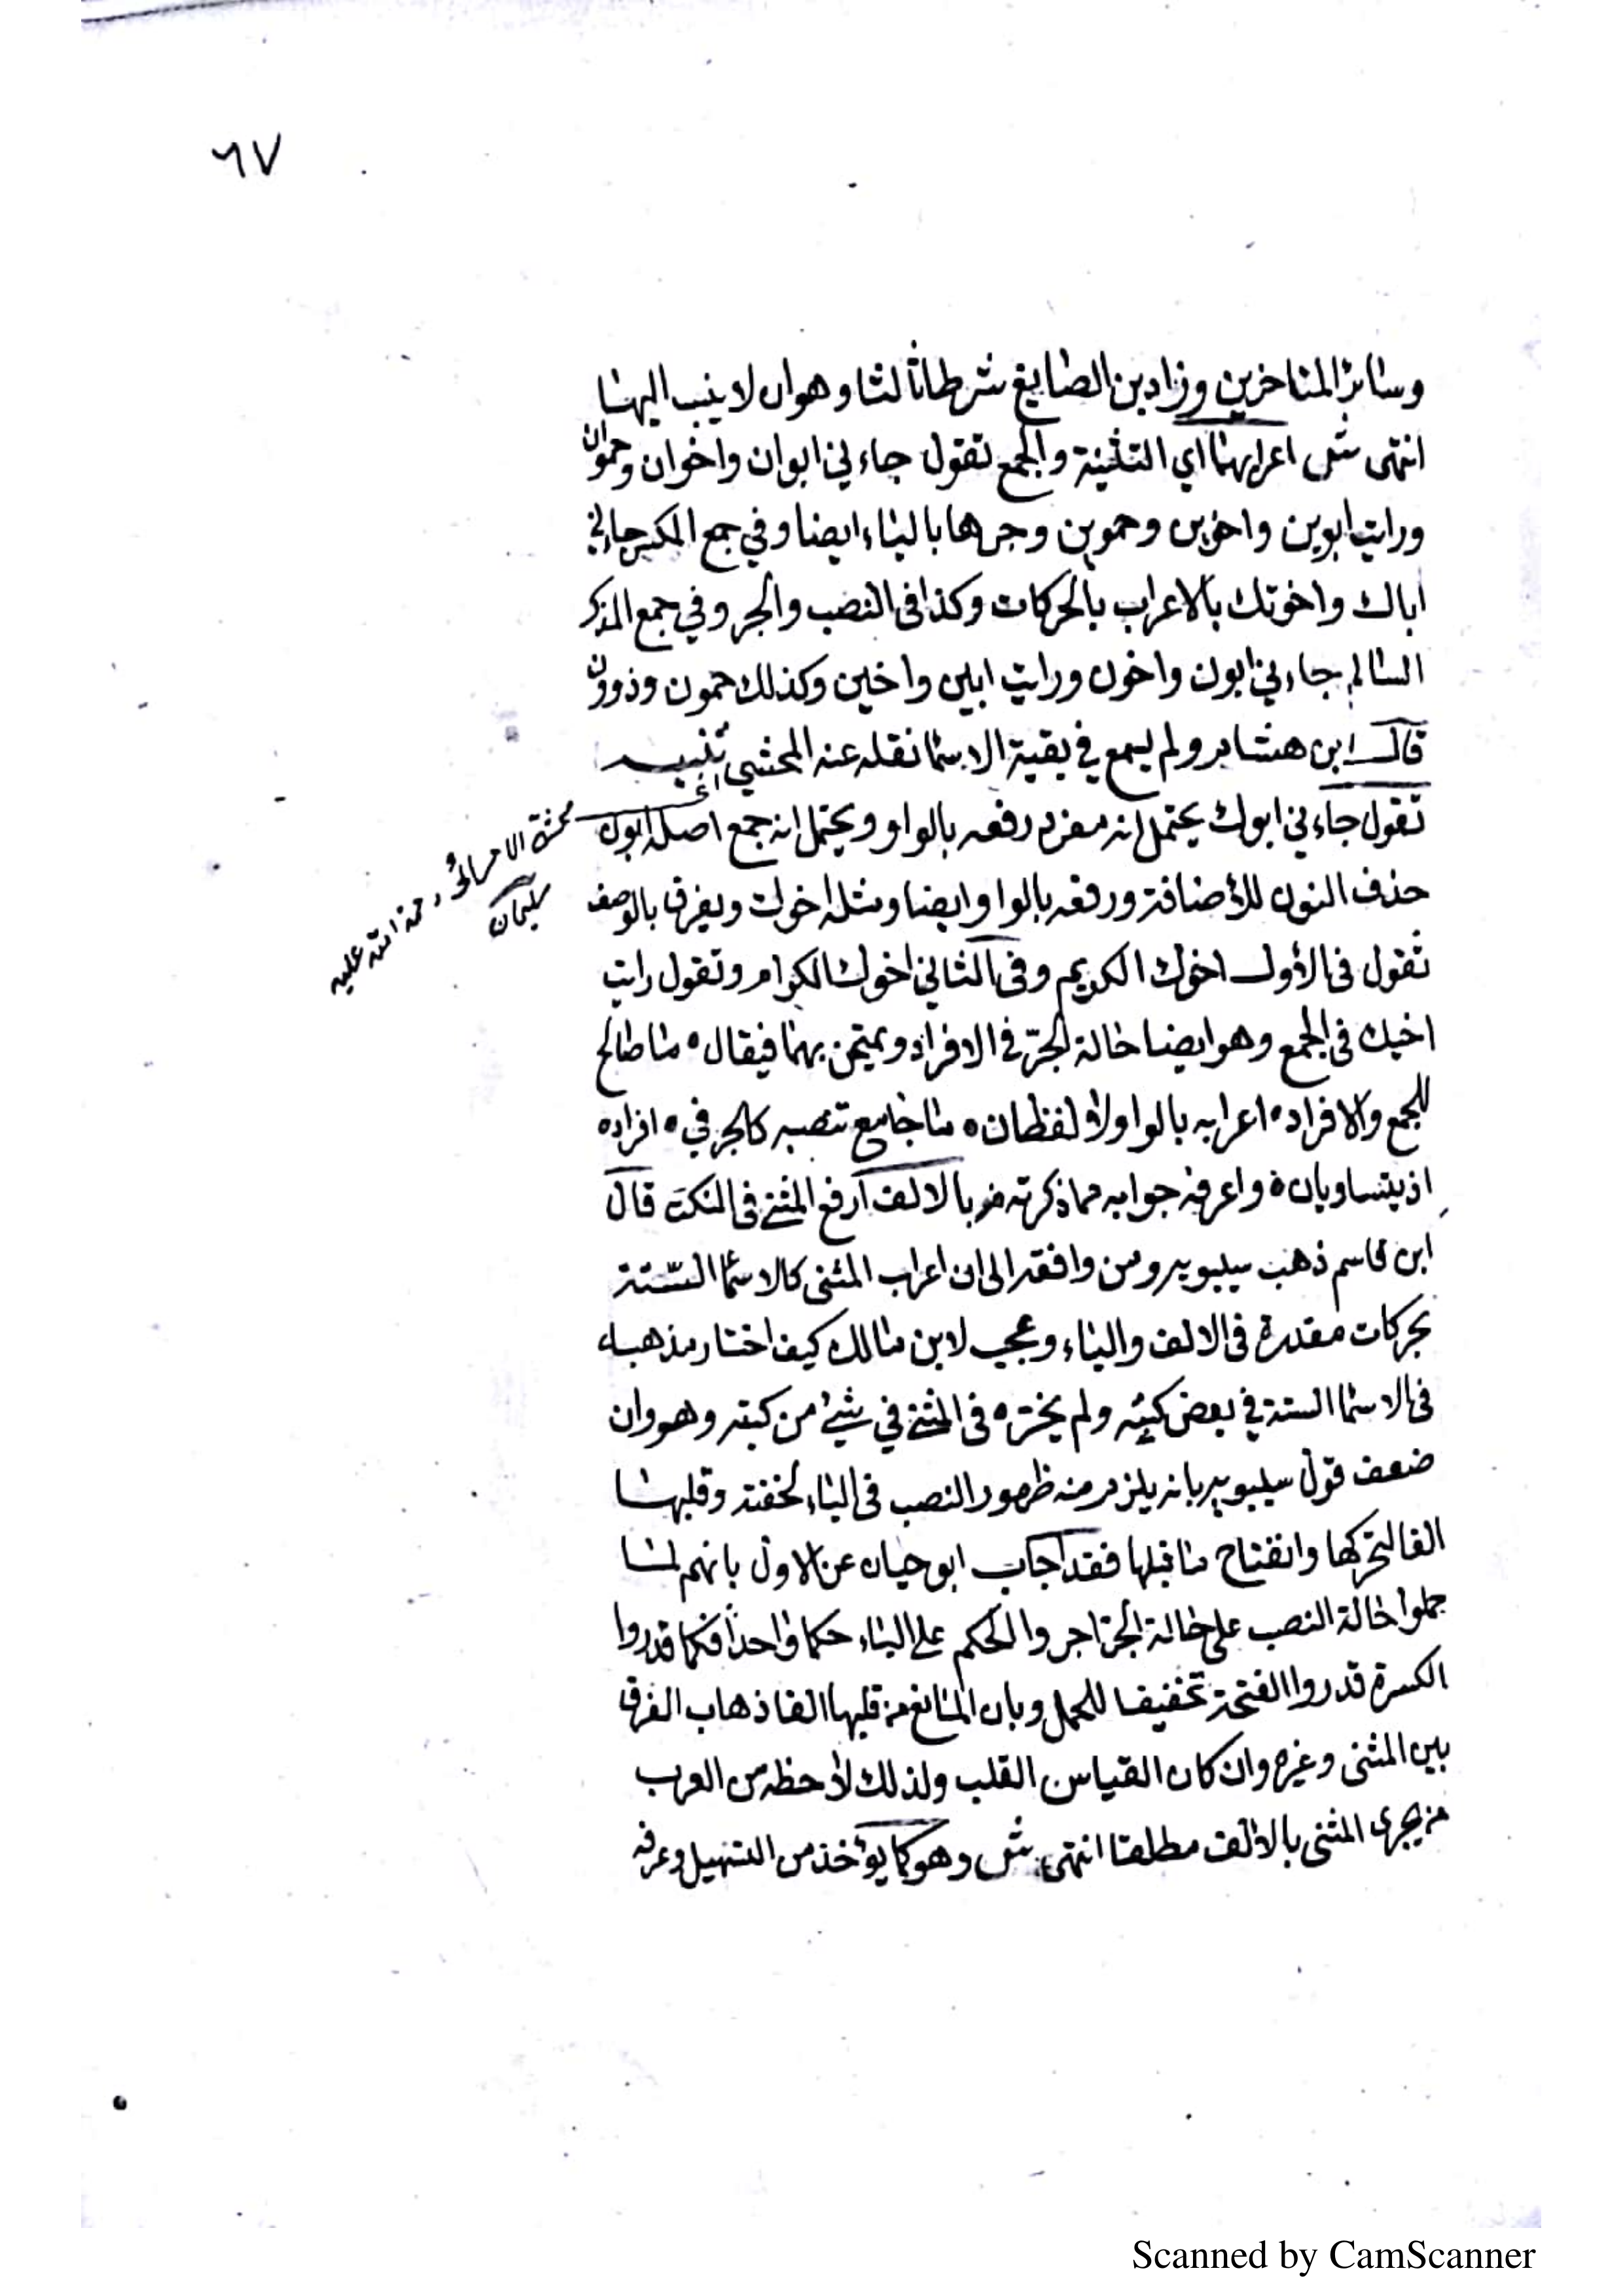 ٦٧
وسائر المتاخرين وزاد بن الصايغ شرطا ثالثا وهو ان لا ينسب اليها
انتهى ش اعرابهما اي التثنية والجمع تقول جاءني ابوان واخوان وحموان
ورايت ابوين واخوين وحموين وجرها بالياء ايضا وفي جمع المكسر جاءني
اباك واخوتك بالاعراب بالحركات وكذا فى النصب والجر وفي جمع المذكر
السالم جاءني ابون واخون ورايت ابين واخين وكذلك حمون وذوون
قال ابن هشام ولم يسمع في بقية الاسما نقله عنه المحشي تنبيه
تقول جاءني ابوك يحتمل انه مفرد رفعه بالواو ويحتمل انه جمع اصله ابون
حذف النون للأضافة ورفعه بالواو ايضا ومثله اخوك ويفرق بالوصف
تقول فى الأول اخوك الكريم وفى الثاني اخوك الكرام وتقول رايت
اخيك فى الجمع وهو ايضا حالة الجرّ في الافراد ويمتحن بهما فيقال ه ما صالح
للجمع والافراد ه اعرابه بالواو لا لفظان ه ما جامع تنصبه كالجر في ه افراده
اذ يتساويان ه واعرف جوابه مما ذكرته ص بالالف ارفع المثنى فى النكت قال
ابن قاسم ذهب سيبويه ومن وافقه الى ان اعراب المثنى كالاسما الستة
بحركات مقدرة فى الالف والياء وعجب لابن مالك كيف اختار مذهبه
فى الاسما الستة في بعض كتبه ولم يختره فى المثنى في شيئ من كتبه وهو وان
ضعف قول سيبويه بانه يلزم منه ظهور النصب فى الياء لخفته وقلبها
الفا لتحركها وانفتاح ما قبلها فقد اجاب ابو حيان عن الاول بانهم لما
حملوا حالة النصب على حالة الجر اجروا الحكم على الياء حكما واحدا فكما قدروا
الكسرة قدروا الفتحة تخفيفا للحمل وبان المانع من قلبها الفا ذهاب الفرق
بين المثنى وغيره وان كان القياس القلب ولذلك لاحظه من العرب
من يجرى المثنى بالالف مطلقا انتهى ش وهو كما يؤخذ من التسهيل وعرفه
سليمان
رحمة الله عليه
Scanned by CamScanner